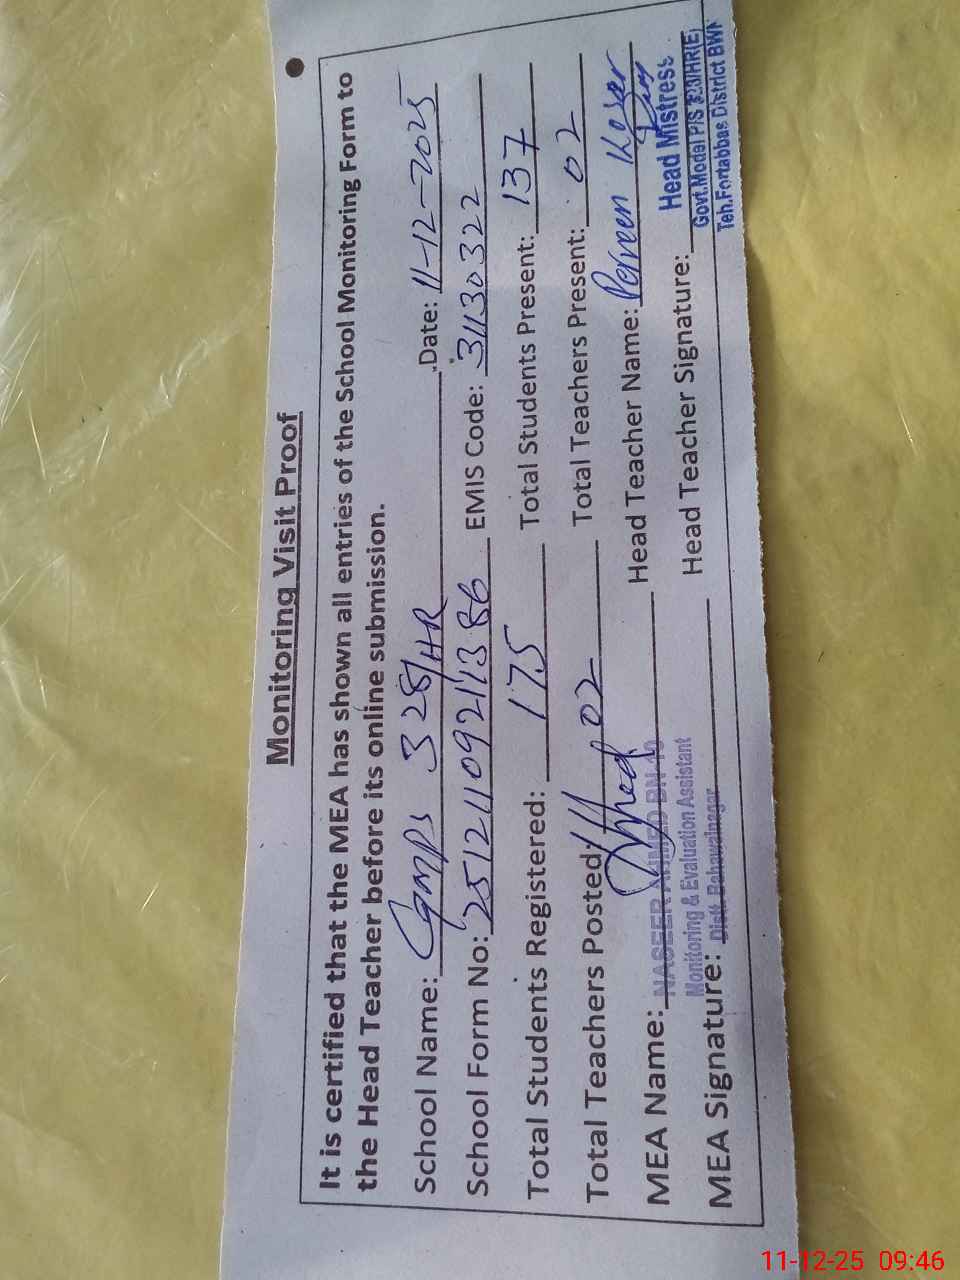 Monitoring Visit Proof
It is certified that the MEA has shown all entries of the School Monitoring Form to
the Head Teacher before its online submission.
School Name: GMPS 328/HR Date: 11-12-2025
School Form No: 2512110921386 EMIS Code: 31130322
Total Students Registered: 175 Total Students Present: 137
Total Teachers Posted: 02 Total Teachers Present: 02
MEA Name: NASEER AHMED BN-10 Head Teacher Name: Perveen Kosar
Monitoring & Evaluation Assistant Head Mistress
MEA Signature: Distt. Bahawalnagar Head Teacher Signature: Govt.Model P/S 328/HR(E)
Teh.Fortabbas District BWN
11-12-25 09:46